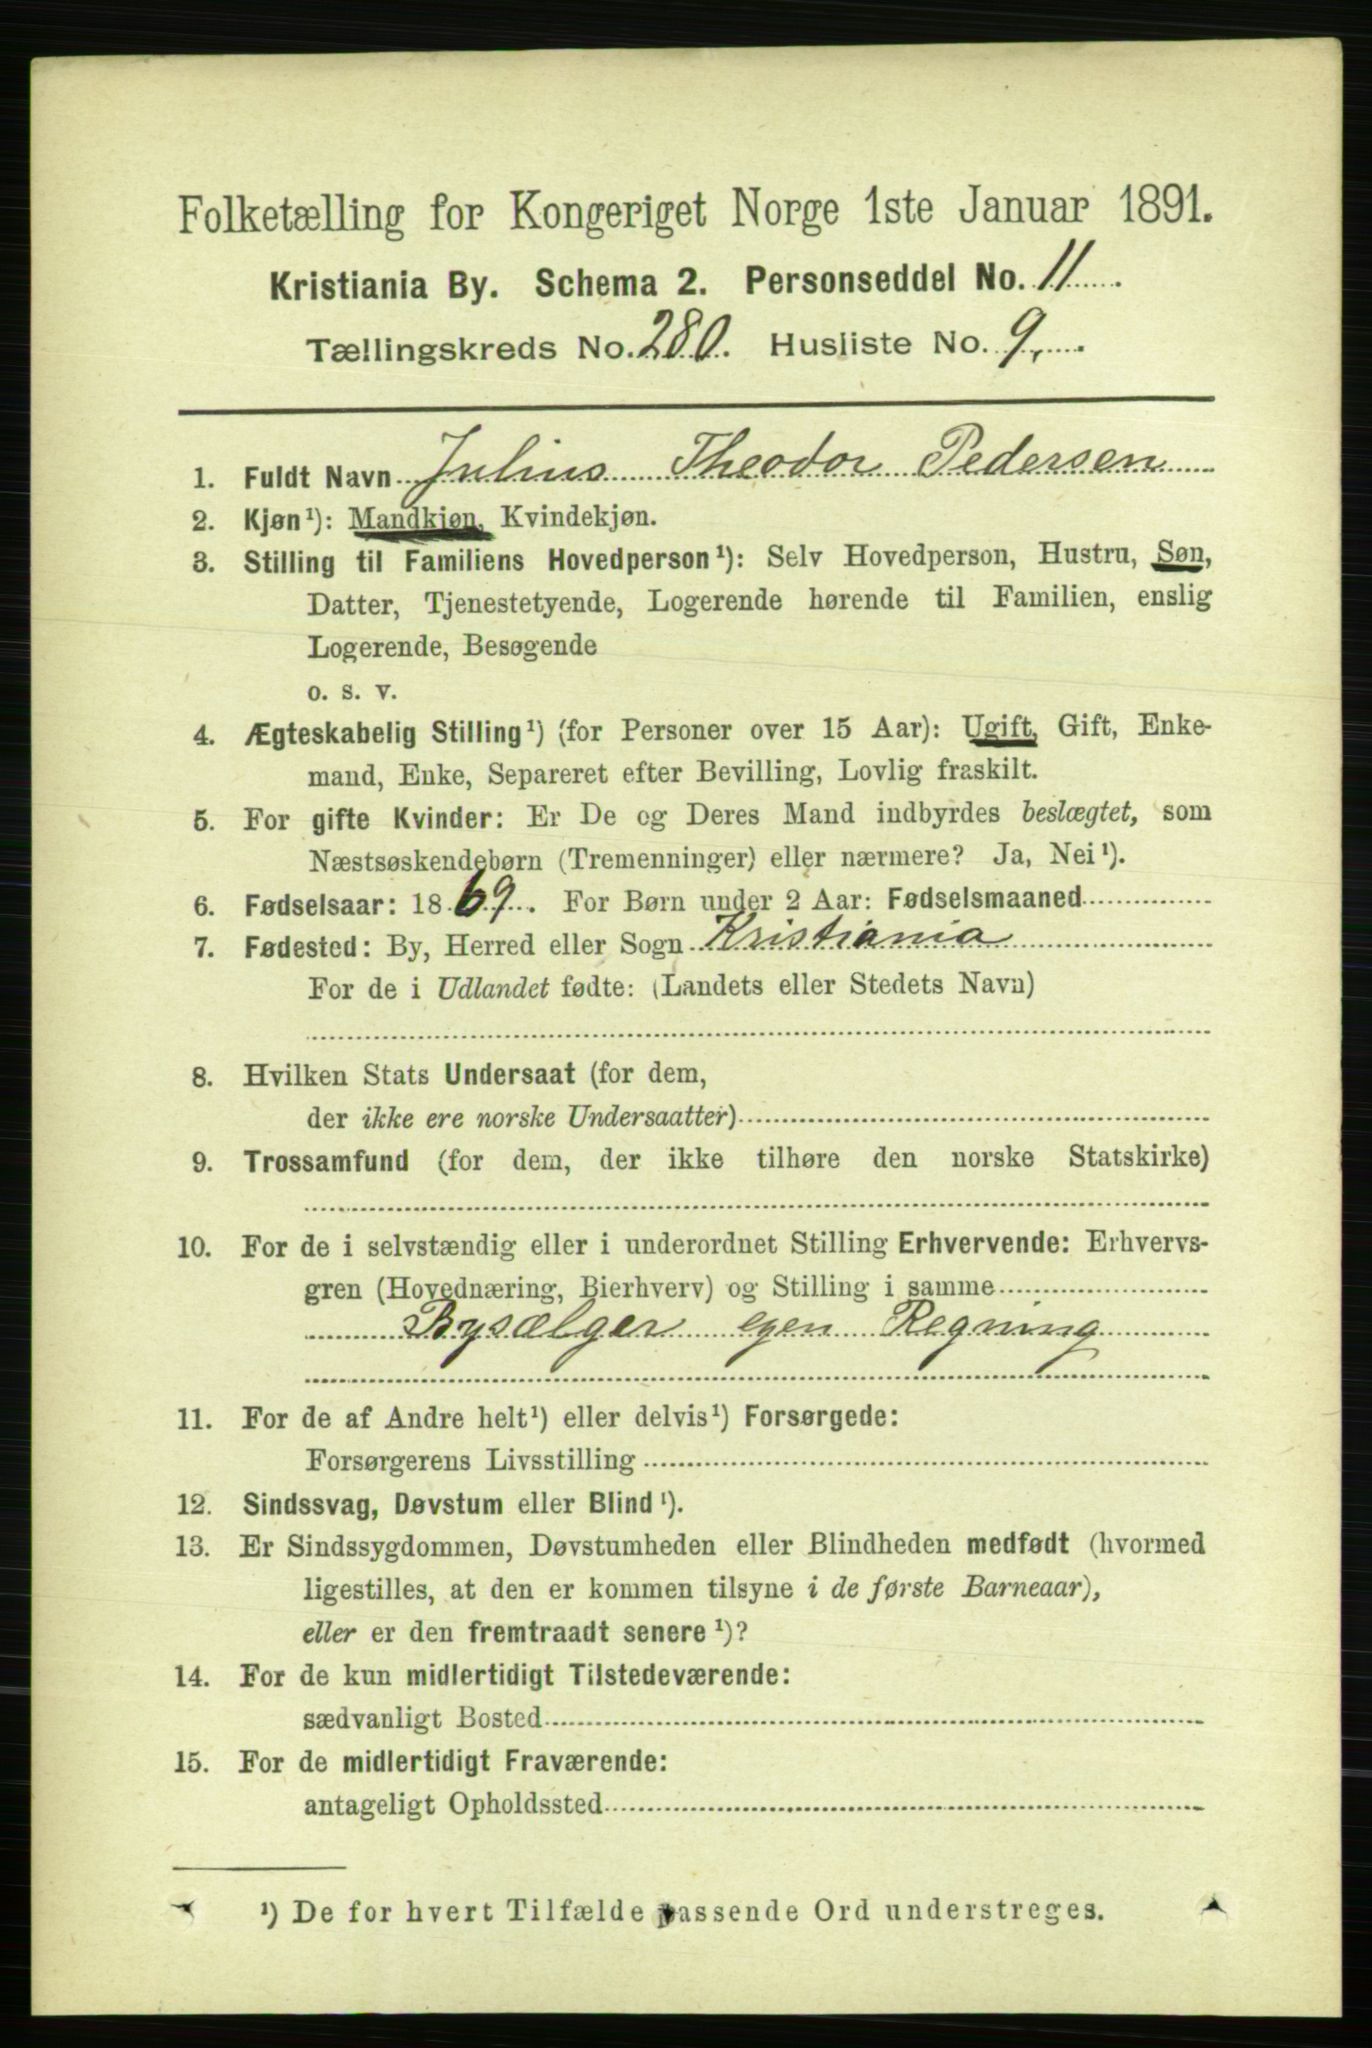 Folketælling for Kongeriget Norge 1ste Januar 1891.
Kristiania By. Schema 2. Personseddel No. 11
Tællingskreds No. 280. Husliste No. 9,
1. Fuldt Navn Julius Theodor Pedersen
2. Kjøn¹): Mandkjøn, Kvindekjøn.
3. Stilling til Familiens Hovedperson¹): Selv Hovedperson, Hustru, Søn,
Datter, Tjenestetyende, Logerende hørende til Familien, enslig
Logerende, Besøgende
o. s. v.
4. Ægteskabelig Stilling¹) (for Personer over 15 Aar): Ugift, Gift, Enke-
mand, Enke, Separeret efter Bevilling, Lovlig fraskilt.
5. For gifte Kvinder: Er De og Deres Mand indbyrdes beslægtet, som
Næstsøskendebørn (Tremenninger) eller nærmere? Ja, Nei¹).
6. Fødselsaar: 1869. For Børn under 2 Aar: Fødselsmaaned
7. Fødested: By, Herred eller Sogn Kristiania
For de i Udlandet fødte: (Landets eller Stedets Navn)
8. Hvilken Stats Undersaat (for dem,
der ikke ere norske Undersaatter)
9. Trossamfund (for dem, der ikke tilhøre den norske Statskirke)
10. For de i selvstændig eller i underordnet Stilling Erhvervende: Erhvervs-
gren (Hovednæring, Bierhverv) og Stilling i samme
Bysælger egen Regning
11. For de af Andre helt¹) eller delvis¹) Forsørgede:
Forsørgerens Livsstilling
12. Sindssvag, Døvstum eller Blind¹).
13. Er Sindssygdommen, Døvstumheden eller Blindheden medfødt (hvormed
ligestilles, at den er kommen tilsyne i de første Barneaar),
eller er den fremtraadt senere¹)?
14. For de kun midlertidigt Tilstedeværende:
sædvanligt Bosted
15. For de midlertidigt Fraværende:
antageligt Opholdssted
¹) De for hvert Tilfælde passende Ord understreges.